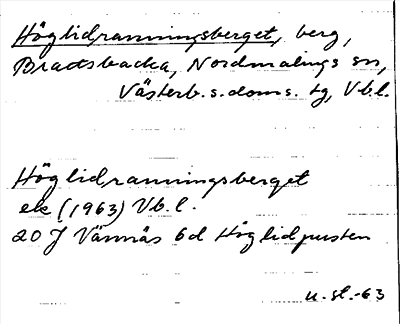 Höglidranningsberget, berg,
Bradsbacka, Nordmalings sn,
Västerb. s. doms. tg, Vbl.
Höglidranningsberget
ek (1963) Vb.l.
20 J Vännäs 6d Höglidpusten
u.st.-63